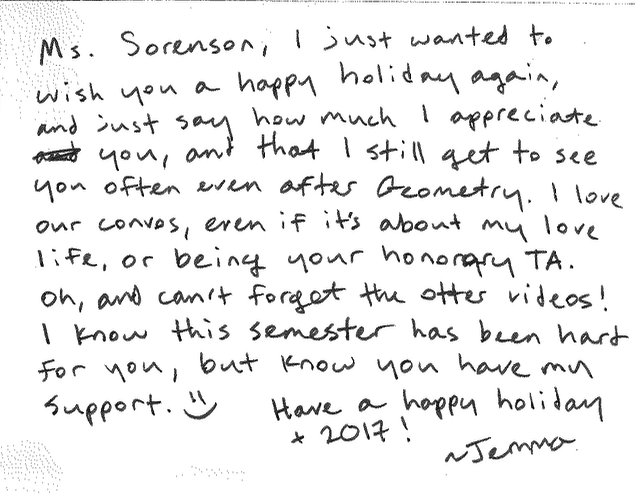 Ms. Sorenson, I just wanted to
wish you a happy holiday again,
and just say how much I appreciate
you, and that I still get to see
you often even after Geometry. I love
our convos, even if it's about my love
life, or being your honorary TA.
Oh, and can't forget the otter videos!
I know this semester has been hard
for you, but know you have my
support. :)
Have a happy holiday
+ 2017!
~Jemma